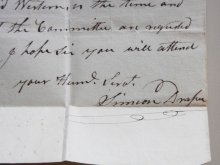 Western, or the time and
t the Committee are requested
& hope Sir you will attend
your Humb. Servt.
Simeon Draper